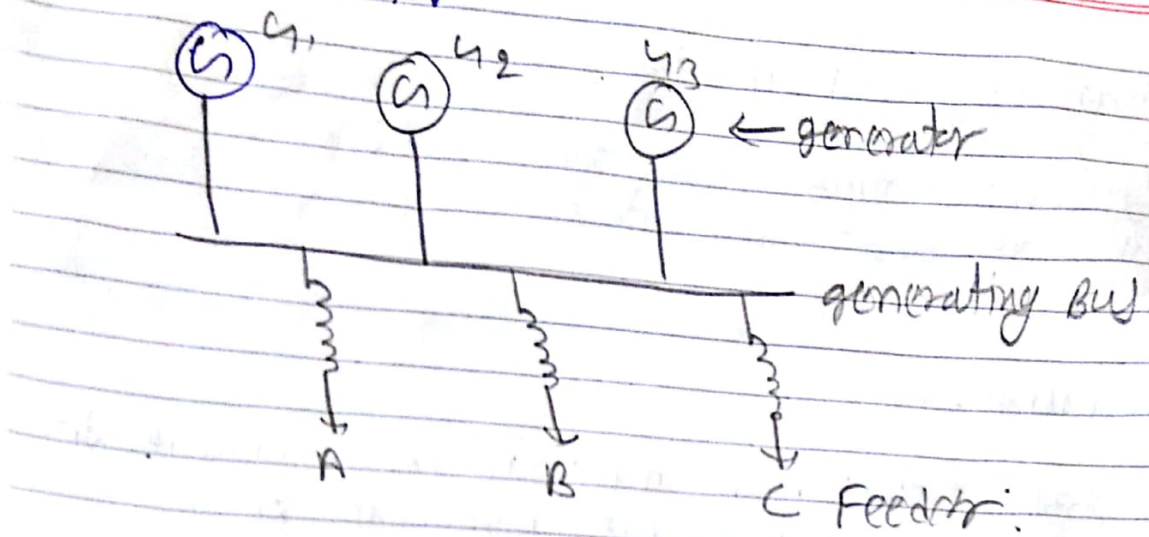 G1 G2 G3
G G G ← generator
generating Bus
A B C Feeder.